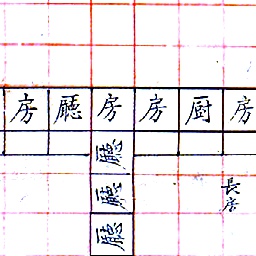 房廳房房厨房
廳
廳
廳
長房